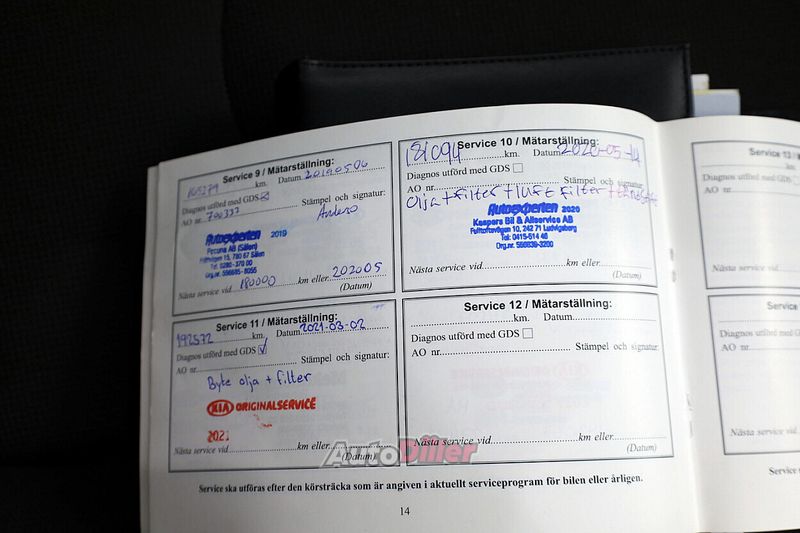 Service 9 / Mätarställning:
165279 km. Datum 20190506
Diagnos utförd med GDS
AO nr. 700337 Stämpel och signatur:
Anders
Autoexperten 2019
Pecuna AB (Sälen)
780 67 Sälen
Tel: 0280-370 00
Nästa service vid 180000 km eller 202005
(Datum)
Service 10 / Mätarställning:
181094 km. Datum 2020-05-14
Diagnos utförd med GDS
AO nr. Stämpel och signatur:
olja + filter + luft filter +
Autoexperten 2020
Kaspers Bil & Allservice AB
242 71 Ludvigsberg
Tel: 0415-514 46
Org.nr. 556639-3200
Nästa service vid km eller
(Datum)
Service 11 / Mätarställning:
192572 km. Datum 2021-03-02
Diagnos utförd med GDS
AO nr. Stämpel och signatur:
Byte olja + filter
KIA ORIGINALSERVICE
2021
Nästa service vid km eller
(Datum)
Service 12 / Mätarställning:
km. Datum
Diagnos utförd med GDS
AO nr. Stämpel och signatur:
Nästa service vid km eller
(Datum)
AutoDiller
Service ska utföras efter den körsträcka som är angiven i aktuellt serviceprogram för bilen eller årligen.
14
Service 13 /
Diagnos utförd med GDS
AO nr.
Nästa service vid
Service
Diagnos utförd med GDS
AO nr.
Nästa service vid
Service